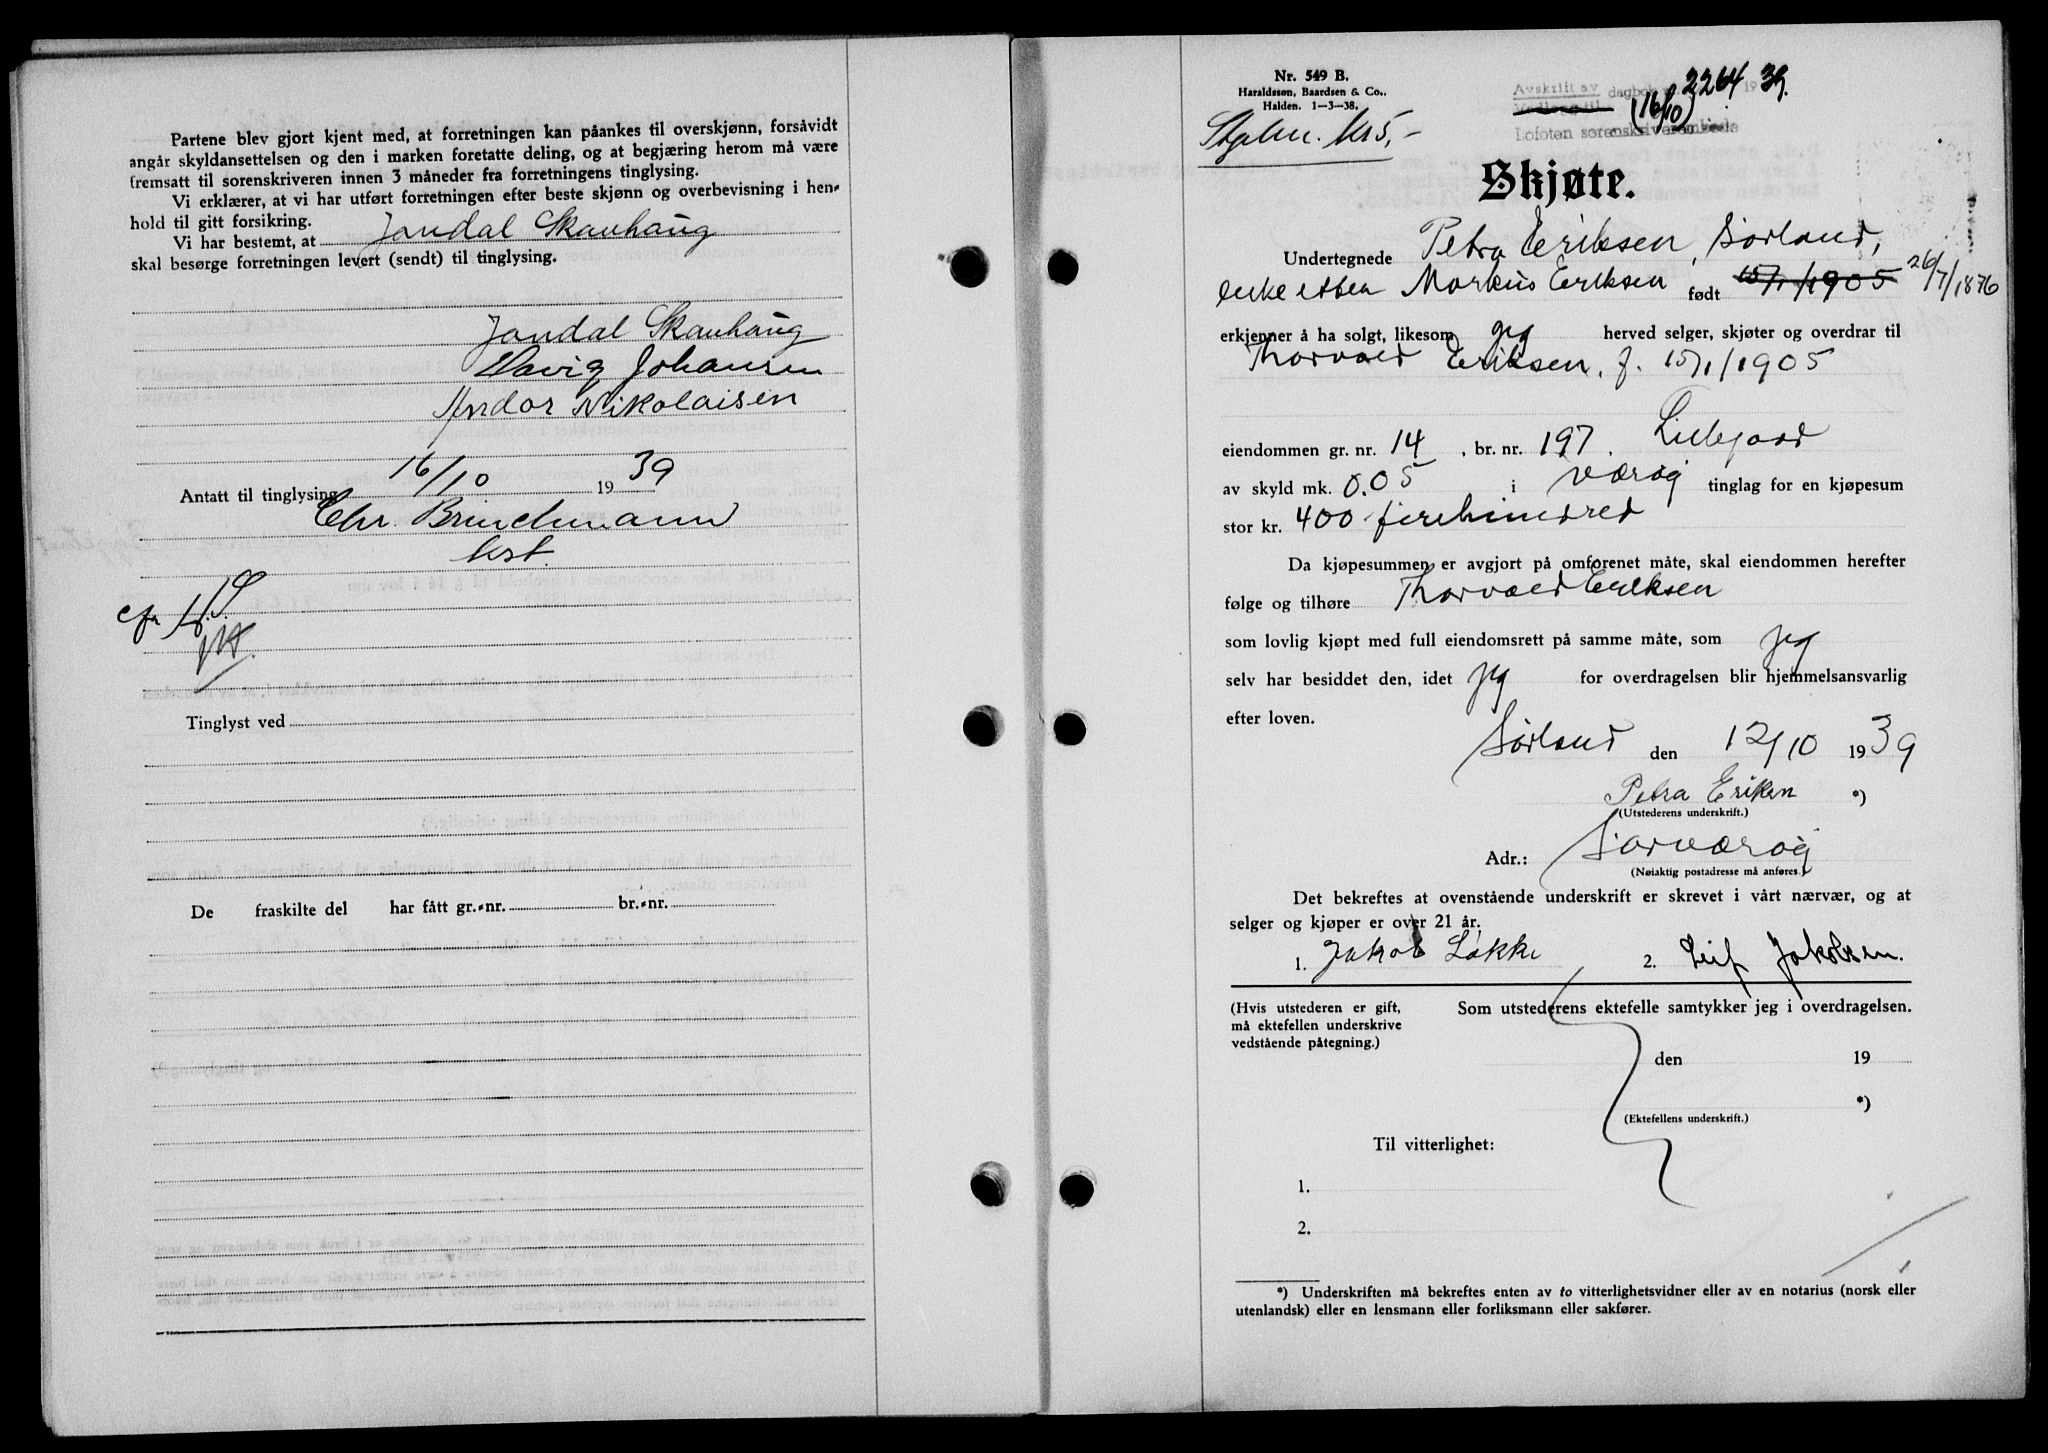 Partene blev gjort kjent med, at forretningen kan påankes til overskjønn, forsåvidt
angår skyldansettelsen og den i marken foretatte deling, og at begjæring herom må være
fremsatt til sorenskriveren innen 3 måneder fra forretningens tinglysing.
Vi erklærer, at vi har utført forretningen efter beste skjønn og overbevisning i hen-
hold til gitt forsikring.
Vi har bestemt, at Jondal Skauhaug
skal besørge forretningen levert (sendt) til tinglysing.
Jondal Skauhaug
Havig Johansen
Andor Nikolaisen
Antatt til tinglysing 16/10 1939
Chr. Brinchmann
kst.
Tinglyst ved
De fraskilte del har fått gr.-nr. br.-nr.
Nr. 549 B.
Haraldssøn, Baardsen & Co.,
Halden. 1—3—38.
Avskrift av
Vedlegg til dagbok 2264 1939.
(16/10)
Lofoten sorenskriverembede
kr 5,-
Skjøte.
Undertegnede Petra Eriksen, Sörland,
enke etter Markus Eriksen født 15/1 1905 26/7/1876
erkjenner å ha solgt, likesom jeg herved selger, skjøter og overdrar til
Thorvald Eriksen, f. 15/1/1905
eiendommen gr. nr. 14, br. nr. 197. Lillegård
av skyld mk. 0.05 i Værøy tinglag for en kjøpesum
stor kr. 400 firehundred
Da kjøpesummen er avgjort på omforenet måte, skal eiendommen herefter
følge og tilhøre Thorvald Eriksen
som lovlig kjøpt med full eiendomsrett på samme måte, som jeg
selv har besiddet den, idet jeg for overdragelsen blir hjemmelsansvarlig
efter loven.
Sörland den 12/10 1939
Petra Eriksen *)
(Utstederens underskrift.)
Adr.: Sörværöy
(Nøiaktig postadresse må anføres.)
Det bekreftes at ovenstående underskrift er skrevet i vårt nærvær, og at
selger og kjøper er over 21 år.
1. Jakob Løkke 2. Leif Jakobsen.
(Hvis utstederen er gift,
må ektefellen underskrive
vedstående påtegning.)
Som utstederens ektefelle samtykker jeg i overdragelsen.
den 19
*)
(Ektefellens underskrift.)
Til vitterlighet:
1.
2.
*) Underskriften må bekreftes enten av to vitterlighetsvidner eller av en notarius (norsk eller
utenlandsk) eller en lensmann eller forliksmann eller sakfører.